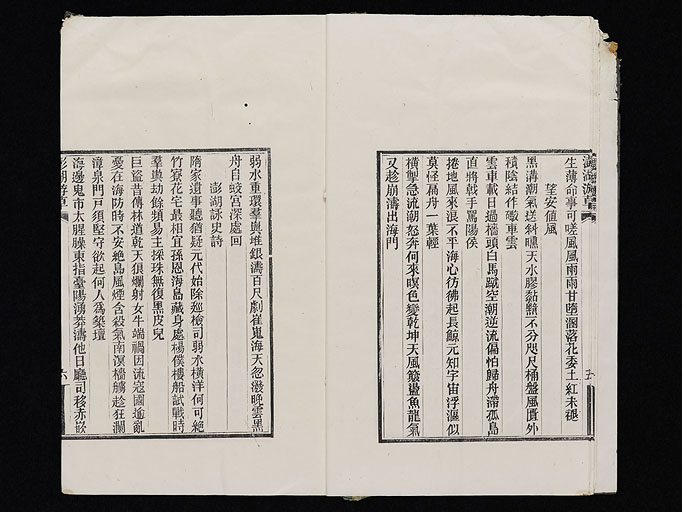 澎湖游草
五
生薄命事可嗟風風雨雨甘墮溷落花委土紅未褪
望安値風
黑溝潮氣送斜曛天水膠黏黯不分咫尺桶盤風霣外
積陰結作礮車雲
雲車載日過檣頭白馬蹴空潮逆流偏怕歸舟滯孤島
直將戟手罵陽侯
捲地風來浪不平海心彷彿起長鯨元知宇宙浮漚似
莫怪扁舟一葉輕
橫掣急流潮怒奔何來暝色變乾坤天風簸盪魚龍氣
又趁崩濤出海門
弱水重環羣輿堆銀濤百尺劇崔嵬海天忽潑晚雲黑
舟自蛟宮深處回
澎湖詠史詩
隋家遺事聽猶疑元代始除廵檢司弱水橫洋何可絶
竹寮花宅最相宜孫恩海島藏身處楊僕樓船試戰時
羣輿劫餘頻易主採珠無復黑皮兒
巨盜昔傳林道乾天狼爛射女牛端禍因流寇國遙亂
憂在海防時不安絶島風煙含殺氣南溟檣艣趁狂瀾
漳泉門戸須堅守欲起何人爲築壇
海邊鬼市太腥臊東指臺陽湧莽濤他日廳司移赤嵌
澎湖游草
六